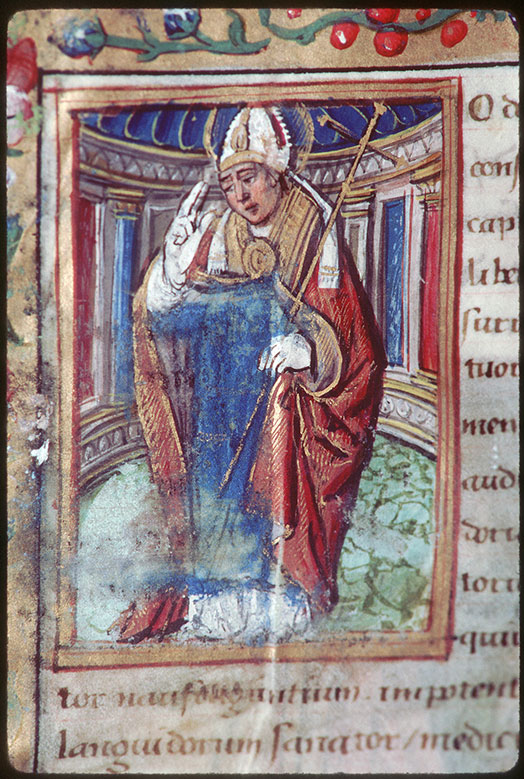 O d
conf
cap
libe
surr
tuor
men
aud
dort
tort
qui
tor naufragantium. impotent
languidorum sanator / medic